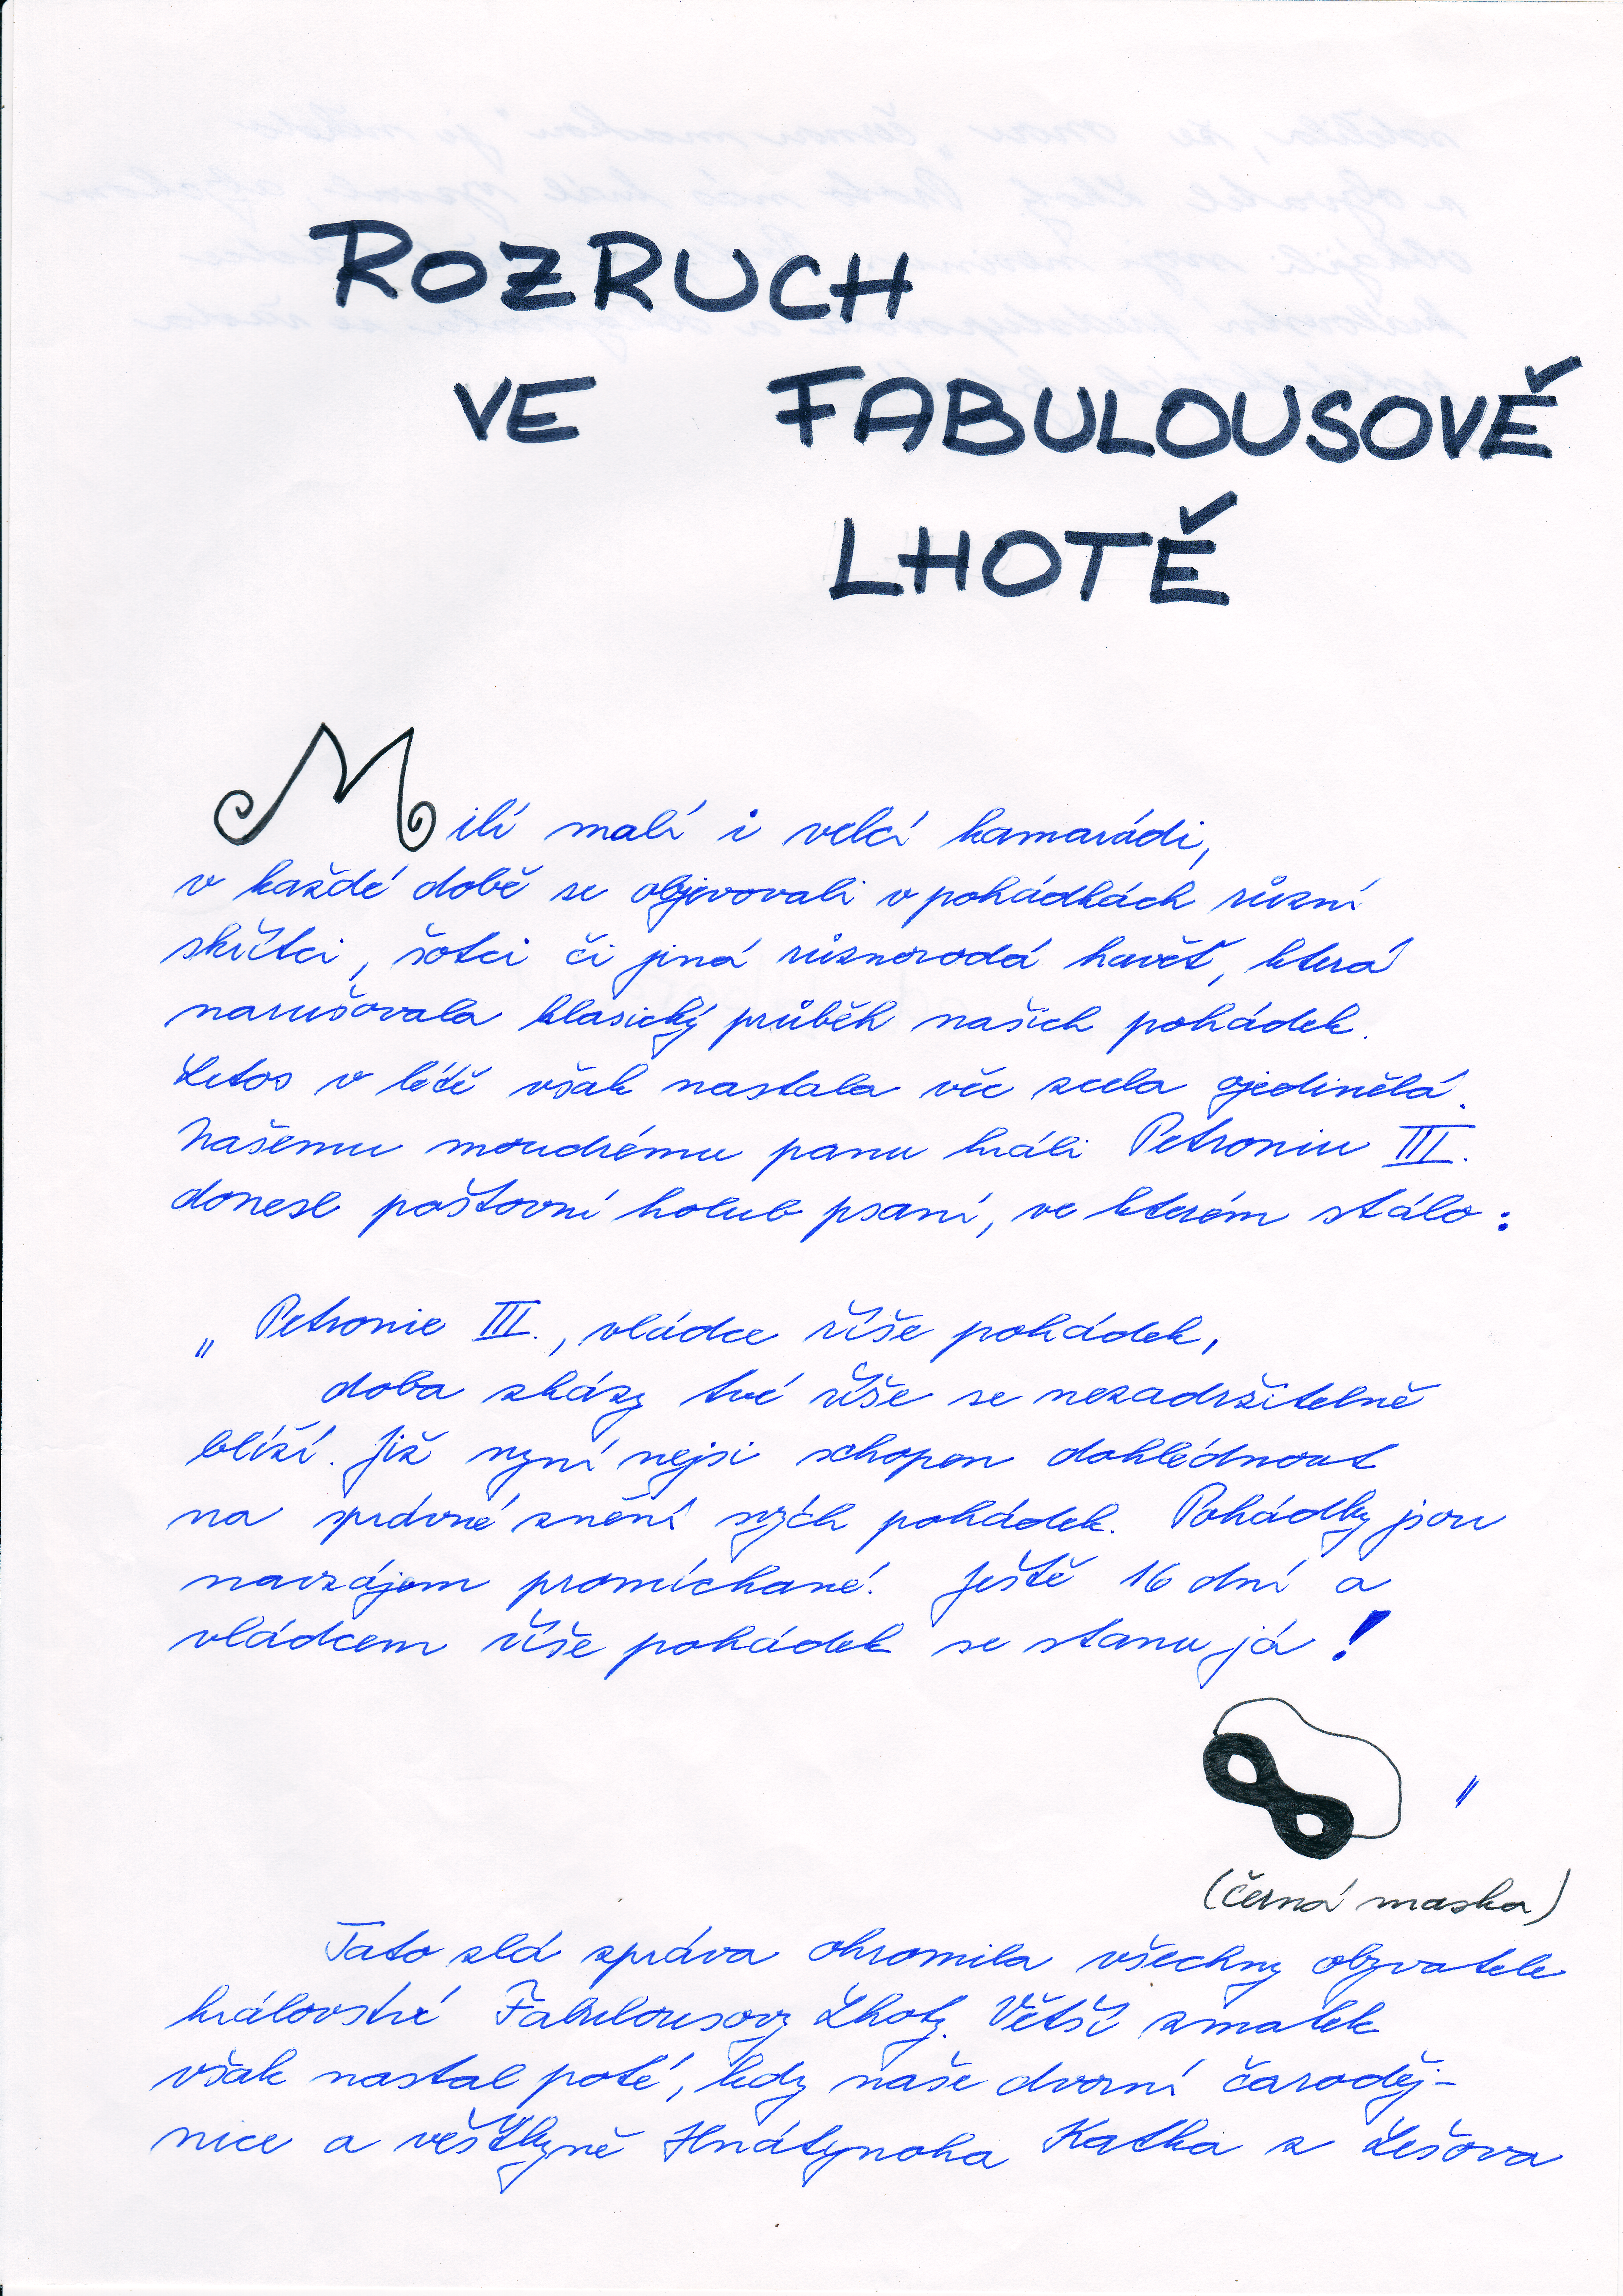 ROZRUCH
VE FABULOUSOVĚ
LHOTĚ
Milí malí i velcí kamarádi,
v každé době se objevovali v pohádkách různí
skřítci, šotci či jiná různorodá havěť, která
narušovala klasický průběh našich pohádek.
Letos v létě však nastala věc zcela ojedinělá.
Našemu moudrému panu králi Petroniu III.
donesl poštovní holub psaní, ve kterém stálo:
„Petronie III., vládce říše pohádek,
doba zkázy tvé říše se nezadržitelně
blíží. Již nyní nejsi schopen dohlédnout
na správné znění svých pohádek. Pohádky jsou
navzájem promíchané. Ještě 16 dní a
vládcem říše pohádek se stanu já!
"
(černá maska)
Tato zlá zpráva ohromila všechny obyvatele
království Fabulousovy Lhoty. Větší zmatek
však nastal poté, kdy naše dvorní čaroděj-
nice a věštkyně Hnátynoha Katka z Lešova